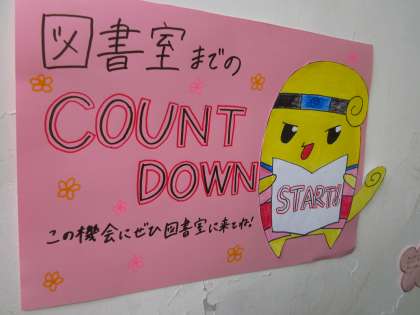 図書室までの
COUNT
DOWN
START!!
この機会にぜひ図書室に来てね!